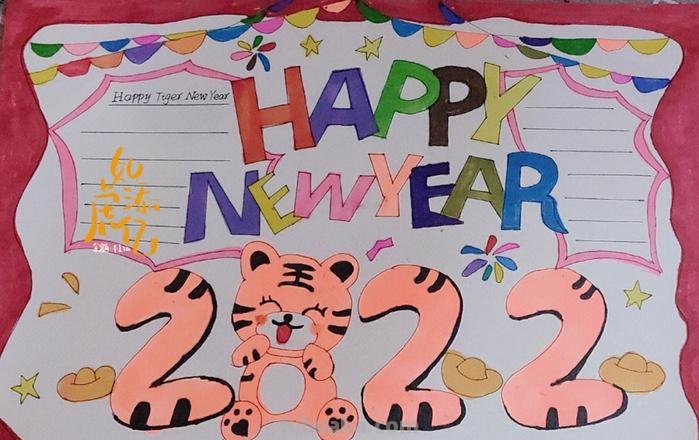 Happy Tiger New Year
HAPPY
NEW YEAR
如
虎添
亿
2022